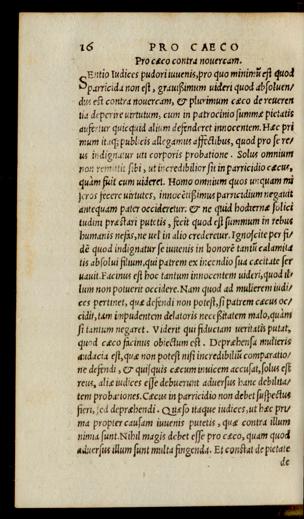 16 PRO CAECO
Pro cæco contra nouercam.
SEntio Iudices pudori iuuenis, pro quo minimũ est quod
parricida non est, grauissimum uideri quod absoluen/
dus est contra nouercam, & plurimum cæco de reueren
tia deperire uirtutum, cum in patrocinio summæ pietatis
aufertur quicquid alium defenderet innocentem. Hæc pri
mum itaq; publicis allegamus affectibus, quod pro se re/
us indignatur uti corporis probatione. Solus omnium
non remittit sibi, ut incredibilior sit in parricidio cæcus,
quàm fuit cum uideret. Homo omnium quos unquam mi
seros fecere uirtutes, innocẽtissimus parricidium negauit
antequam pater occideretur. & ne quid hodiernæ solici
tudini præstari putetis, fecit quod est summum in rebus
humanis nefas, ne uel in alio crederetur. Ignoscite per fi/
dẽ quod indignatur se iuuenis in honorẽ tantũ calamita
tis absolui filium, qui patrem ex incendio sua cæcitate ser
uauit. Facinus est hoc tantum innocentem uideri, quod il/
lum non potuerit occidere. Nam quod ad mulierem iudi/
ces pertinet, quæ defendi non potest, si patrem cæcus oc/
cidit, tam impudentem delatoris necessitatem malo, quàm
si tantum negaret. Viderit qui fiduciam ueritatis putat,
quod cæco facinus obiectum est. Depræhensa mulieris
audacia est, quæ non potest nisi incredibili comparatio/
ne defendi, & quisquis cæcum iuuenem accusat, solus est
reus, aliæ iudices esse debuerunt aduersus hanc debilita/
tem probationes. Cæcus in parricidio non debet suspectus
fieri, sed depræhendi. Quæso itaque iudices, ut hæc pri/
ma propter causam iuuenis putetis, quæ contra illum
nimia sunt. Nihil magis debet esse pro cæco, quam quod
aduersus illum sunt multa fingenda. Et constat de pietate
de